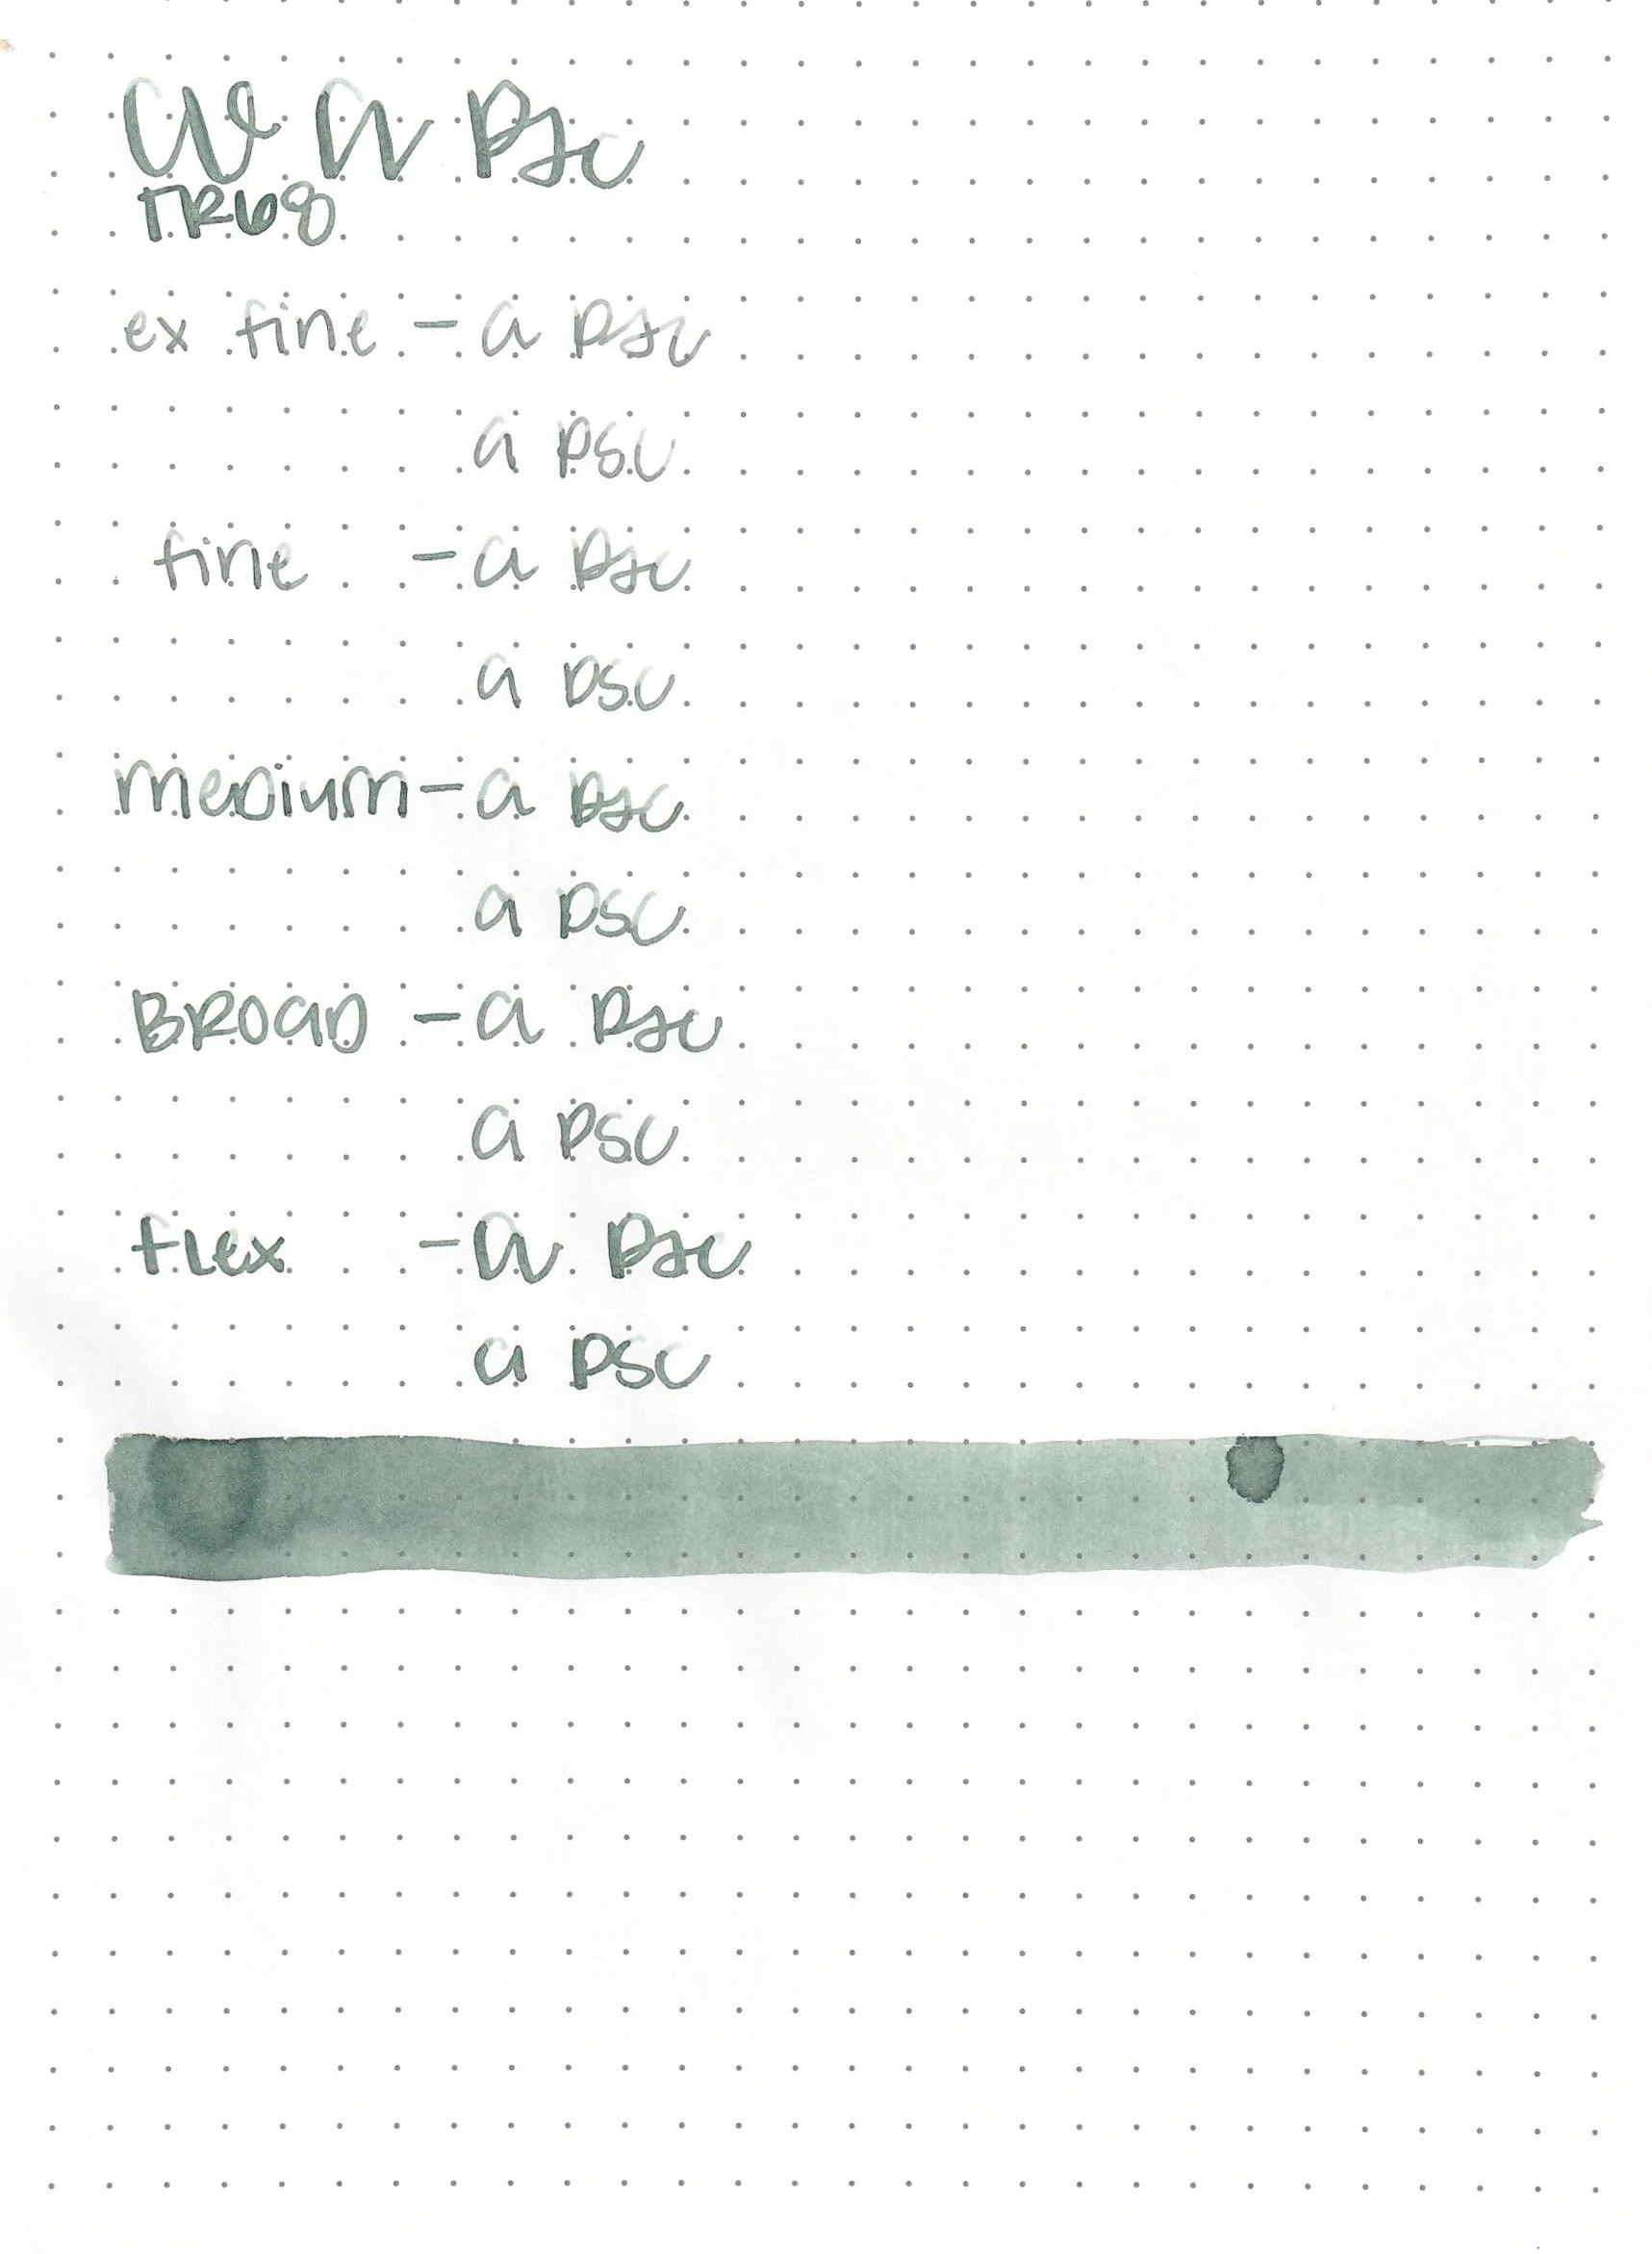 We a psc
TR68
ex fine - a psc
a psc
fine - a psc
a psc
medium - a psc
a psc
BROaD - a psc
a psc
flex - a psc
a psc